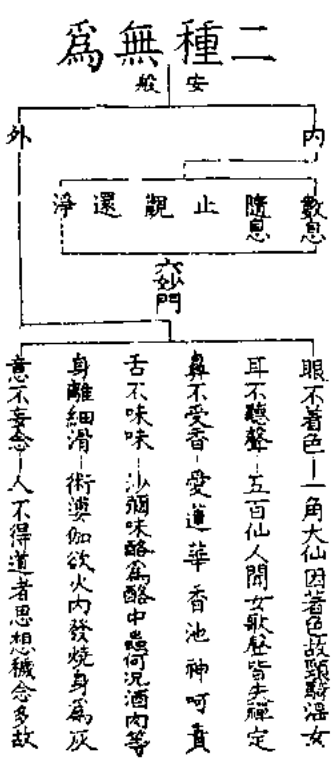 二種無爲
安般
內
外
數息
隨息
止
觀
還
淨
六妙門
眼不着色—一角大仙因著色故頸騎淫女
耳不聽聲—五百仙人聞女歌聲皆失禪定
鼻不受香—愛蓮華香池神呵責
舌不味味—沙彌味酪爲酪中蟲何況酒肉等
身離細滑—術婆伽欲火內發燒身爲灰
意不妄念—人不得道者思想穢念多故